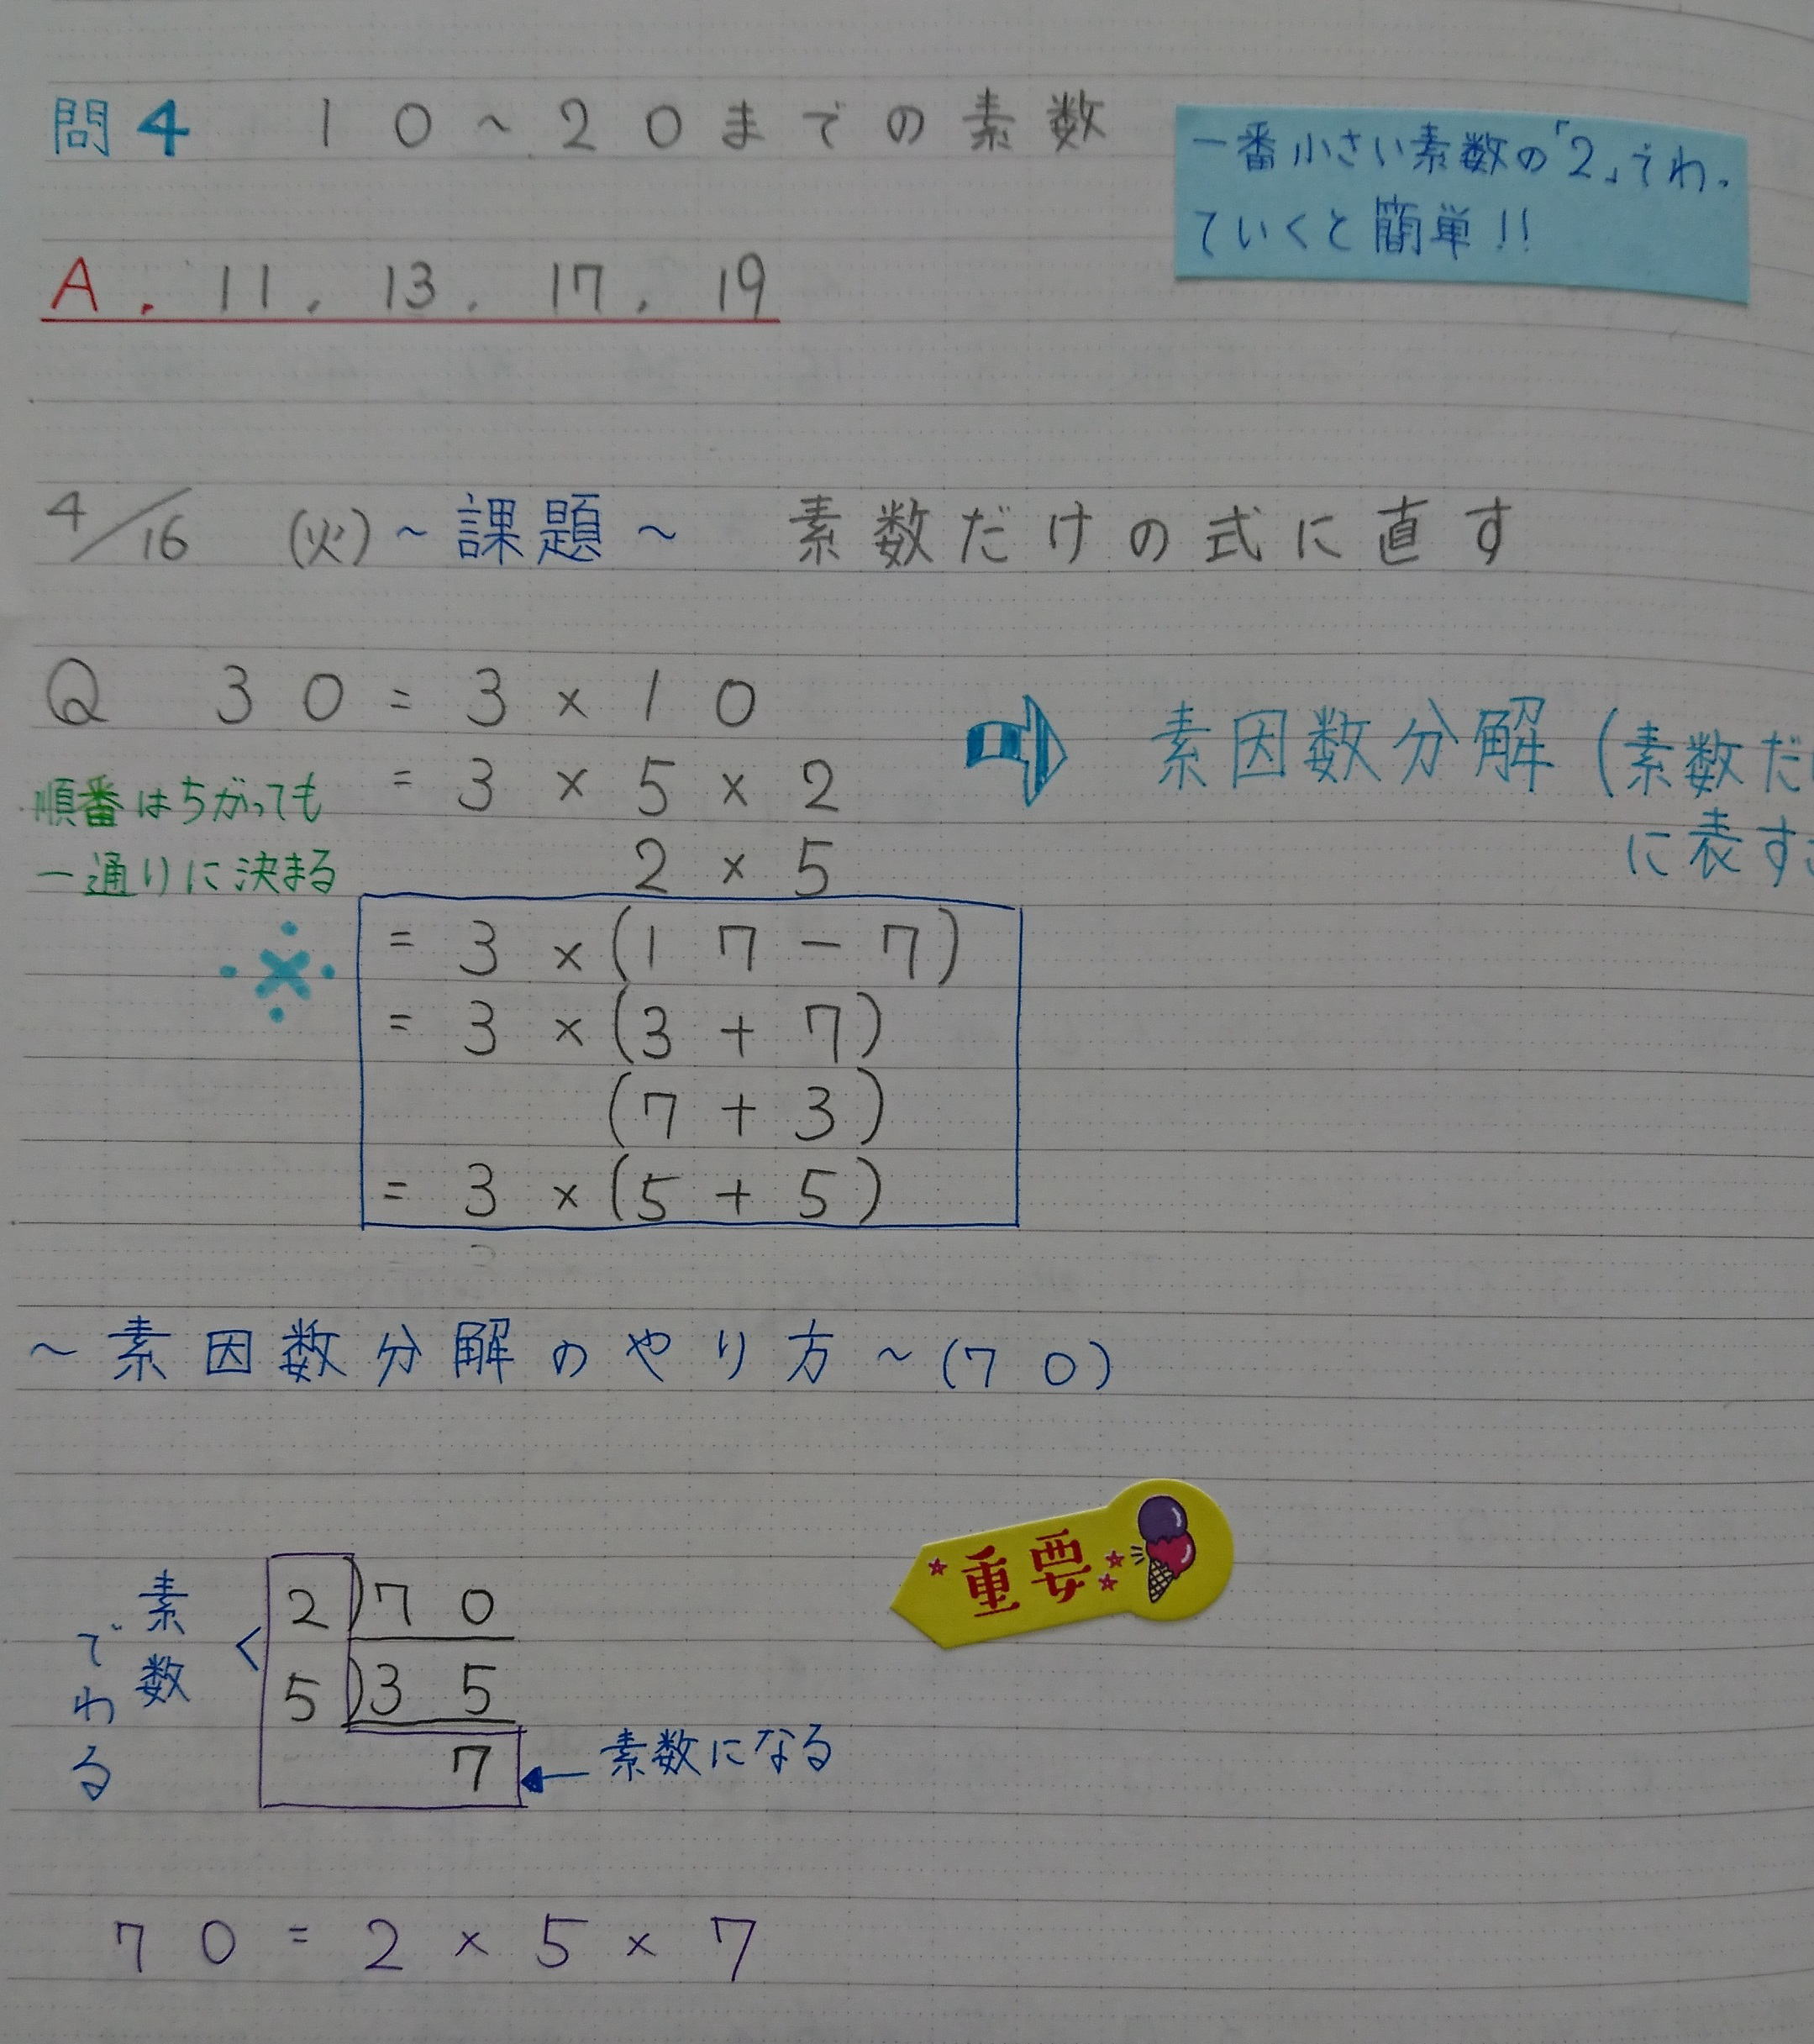 問4 10～20までの素数
一番小さい素数の「2」でわっ
ていくと簡単!!
A. 11, 13, 17, 19
4/16 (火)～課題～ 素数だけの式に直す
Q 30=3×10
=3×5×2
2×5
順番はちがっても
一通りに決まる
⇨ 素因数分解(素数だ
に表す
※
=3×(17-7)
=3×(3+7)
(7+3)
=3×(5+5)
～素因数分解のやり方～(70)
重要
素数
でわる
2)70
5)35
7
←素数になる
70=2×5×7